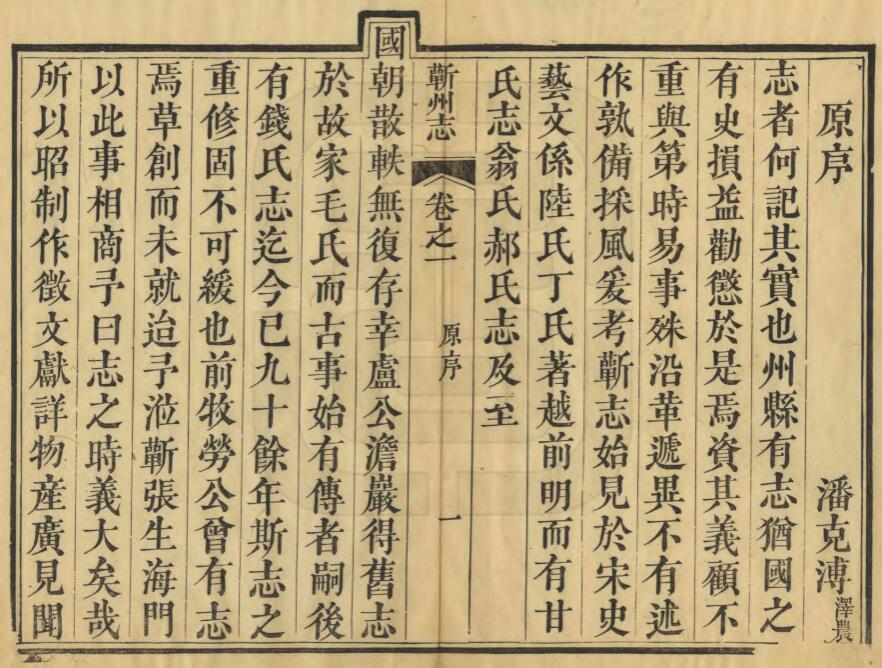 原序 潘克溥澤農
志者何記其實也州縣有志猶國之
有史損益勸懲於是焉資其義顧不
重與第時易事殊沿革遞異不有述
作孰備採風爰考蘄志始見於宋史
藝文係陸氏丁氏著越前明而有甘
氏志翁氏郝氏志及至
蘄州志 卷之一 原序 一
國朝散軼無復存幸盧公澹巖得舊志
於故家毛氏而古事始有傳者嗣後
有錢氏志迄今已九十餘年斯志之
重修固不可緩也前牧勞公曾有志
焉草創而未就迨予涖蘄張生海門
以此事相商予曰志之時義大矣哉
所以昭制作徵文獻詳物産廣見聞